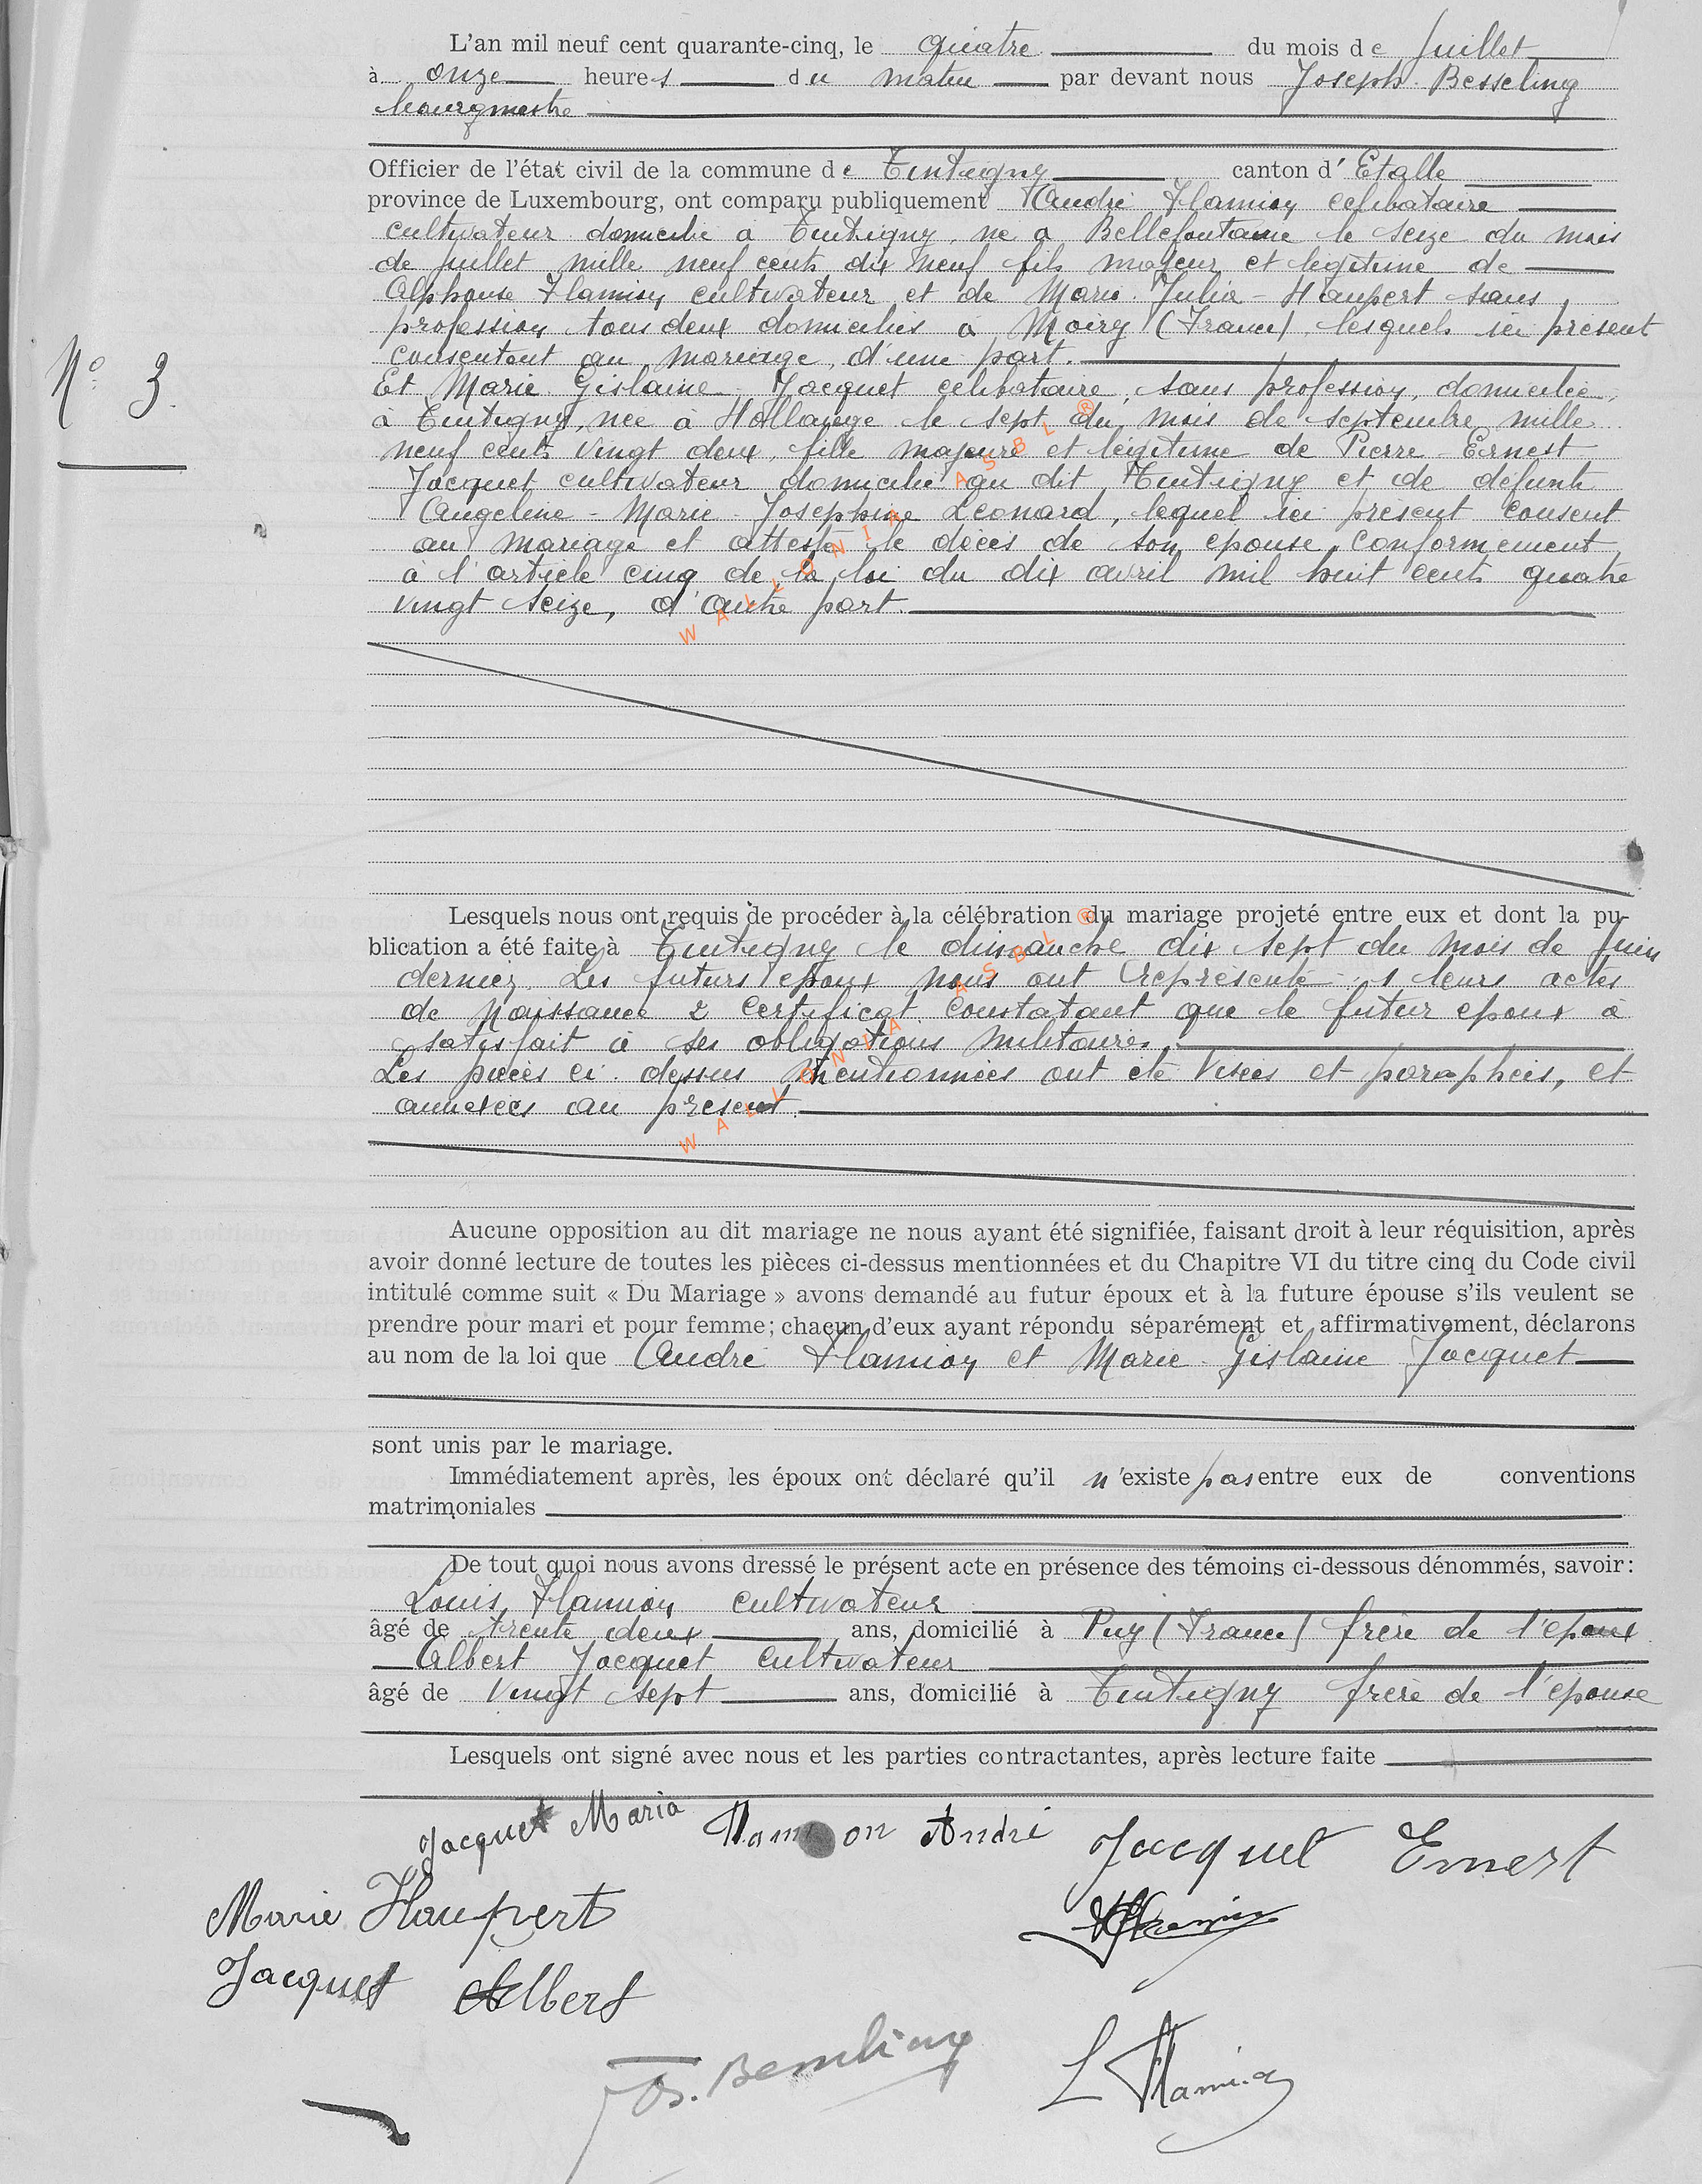 L'an mil neuf cent quarante-cinq, le quatre du mois de Juillet
à onze heures du matin par devant nous Joseph Besseling
bourgmestre
Officier de l'état civil de la commune de Tintigny canton d'Etalle
province de Luxembourg, ont comparu publiquement André Flamion celibataire
cultivateur domicilie a Tintigny, ne a Bellefontaine le seize du mois
de Juillet mille neuf cents dix neuf fils majeur et legitime de
Alphonse Flamion cultivateur et de Marie Julia - Haupert sans
profession tous deux domicilies à Moiry (France) lesquels ici présent
consentent au mariage, d'une part.
N° 3.
Et Marie Gislaine Jacquet celibataire, sans profession, domiciliée,
à Tintigny, née à Hollange le sept du mois de septembre mille
neuf cents vingt deux, fille majeure et légitime de Pierre - Ernest
Jacquet cultivateur domicilié au dit Tintigny et de défunte
Angeline - Marie - Josephine Léonard, lequel ici présent consent
au mariage et atteste le décès de son epouse conformement
à l'article cinq de la loi du dix avril mil huit cents quatre
vingt seize, d'autre part.
WALLONIA ASBL ®
Lesquels nous ont requis de procéder à la célébration du mariage projeté entre eux et dont la pu-
blication a été faite à Tintigny le dimanche dix sept du mois de Juin
dernier. Les futurs epoux nous ont représenté : 1 leurs actes
de Naissance 2 certificat constatant que le futur epoux à
satisfait à ses obligations militaires.
Les pièces ci-dessus mentionnées ont été visées et paraphées, et
annexées au présent.
WALLONIA ASBL ®
Aucune opposition au dit mariage ne nous ayant été signifiée, faisant droit à leur réquisition, après
avoir donné lecture de toutes les pièces ci-dessus mentionnées et du Chapitre VI du titre cinq du Code civil
intitulé comme suit « Du Mariage » avons demandé au futur époux et à la future épouse s'ils veulent se
prendre pour mari et pour femme; chacun d'eux ayant répondu séparément et affirmativement, déclarons
au nom de la loi que André Flamion et Marie Gislaine Jacquet
sont unis par le mariage.
Immédiatement après, les époux ont déclaré qu'il n'existe pas entre eux de conventions
matrimoniales
De tout quoi nous avons dressé le présent acte en présence des témoins ci-dessous dénommés, savoir:
Louis Flamion cultivateur
âgé de trente deux ans, domicilié à Puy (France) frère de l'epoux
Albert Jacquet cultivateur
âgé de vingt sept ans, domicilié à Tintigny frère de l'epouse
Lesquels ont signé avec nous et les parties contractantes, après lecture faite
Jacquet Maria Flamion André Jacquet Ernest
Marie Haupert
Jacquet Albert
Jos. Besseling L Flamion